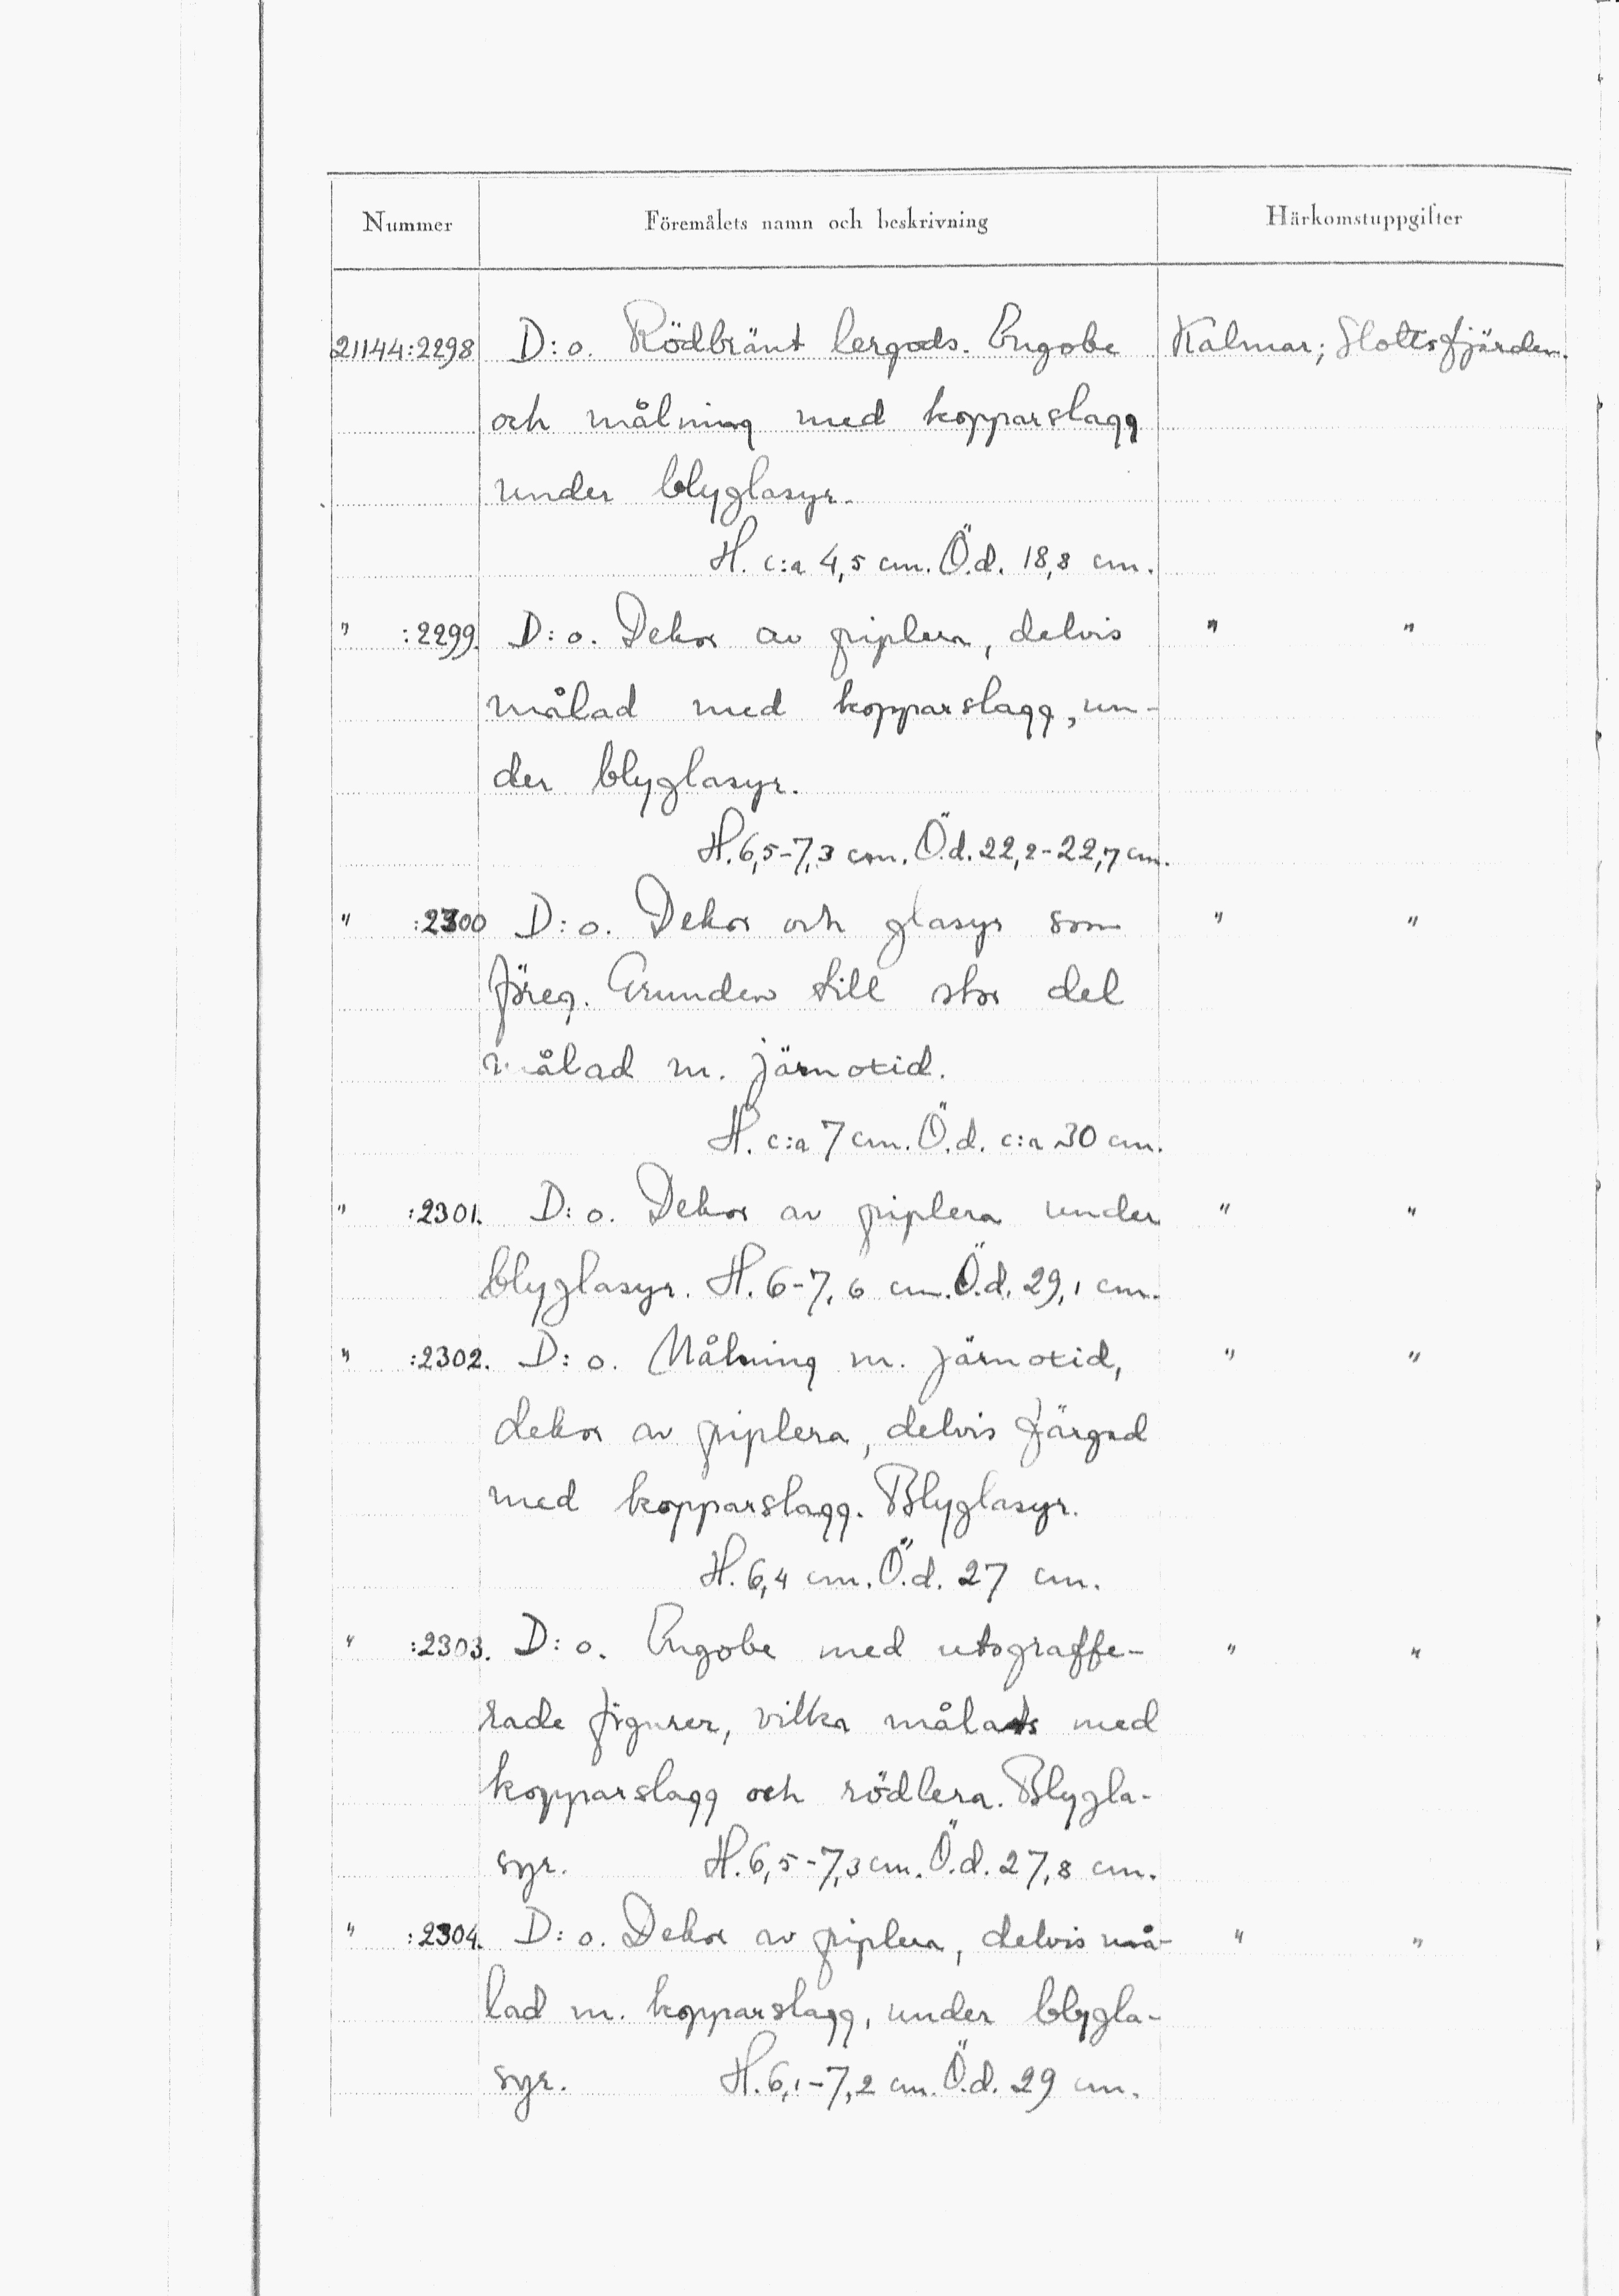 Nummer Föremålets namn och beskrivning Härkomstuppgifter
21144:2298 D:o. Rödbränt lergods. Engobe Kalmar; Slottsfjärden.
och målning med kopparslagg
under blyglasyr.
H. c:a 4,5 cm. Ö.d. 18,8 cm.
" :2299. D:o. Dekor av piplera, delvis " "
målad med kopparslagg, un-
der blyglasyr.
H. 6,5-7,3 cm. Ö.d. 22,2-22,7 cm.
" :2300 D:o. Dekor och glasyr som " "
föreg. Grunden till stor del
målad m. järnoxid.
H. c:a 7 cm. Ö.d. c:a 30 cm.
" :2301. D:o. Dekor av piplera under " "
blyglasyr. H. 6-7,6 cm. Ö.d. 29,1 cm.
" :2302. D:o. Målning m. järnoxid, " "
dekor av piplera, delvis färgad
med kopparslagg. Blyglasyr.
H. 6,4 cm. Ö.d. 27 cm.
" :2303. D:o. Engobe med utsgraffe- " "
rade figurer, vilka målats med
kopparslagg och rödlera. Blygla-
syr. H. 6,5-7,3 cm. Ö.d. 27,8 cm.
" :2304. D:o. Dekor av piplera, delvis må- " "
lad m. kopparslagg, under blygla-
syr. H. 6,1-7,2 cm. Ö.d. 29 cm.